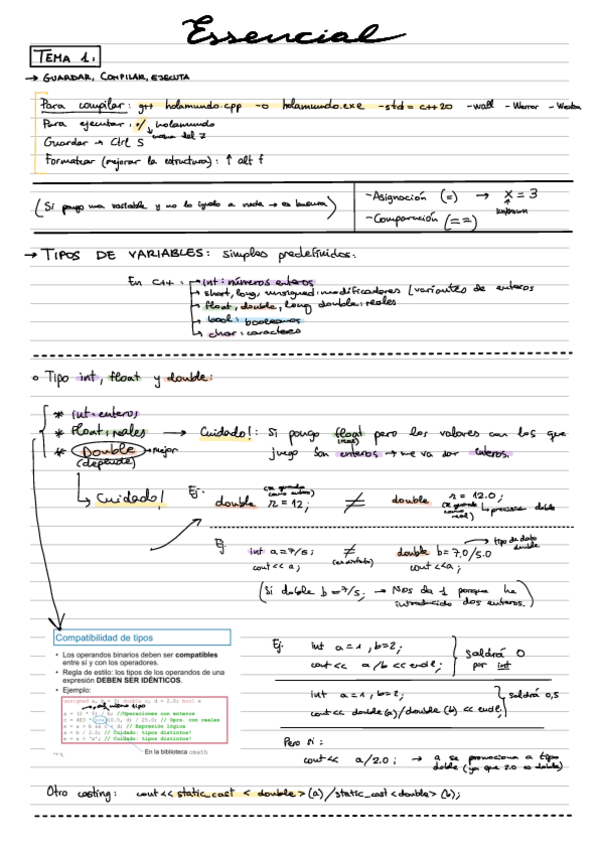 Essencial
TEMA 1.
→ GUARDAR, COMPILAR, EJECUTA
Para compilar: g++ holamundo.cpp -o holamundo.exe -std=c++20 -wall -Werror
Para ejecutar: ./holamundo
encima del 7
Guardar → Ctrl S
Formatear (mejorar la estructura): ↑ alt f
(Si pongo una variable y no lo igualo a nada → es basura)
-Asignación (=) → x = 3
-Comparación (==)
→ TIPOS DE VARIABLES: simples predefinidos:
En C++:
→ int: números enteros
→ short, long, unsigned: modificadores (variantes de enteros
→ float, double, long double: reales
→ bool: booleanos
→ char: caracteres
o Tipo int, float y double:
* int: enteros
* Float: reales → Cuidado!: Si pongo float pero los valores con los que
(reales)
* Double → mejor juego son enteros → me va dar enteros.
(depende)
↳ Cuidado! Ej. double n = 12; ≠ double n = 12.0;
(se guarda como entero) (se guarda como real)
Ej. int a=7/5; ≠ double b=7.0/5.0 → tipo de dato double
cout<< a; cout<<a;
(Si doble b=7/5; → Nos da 1 porque he
introducido dos enteros.)
Compatibilidad de tipos
• Los operandos binarios deben ser compatibles
entre sí y con los operadores.
• Regla de estilo: los tipos de los operandos de una
expresión DEBEN SER IDÉNTICOS.
• Ejemplo:
a = (2 * 5) / b; //Operaciones con enteros
// Opre. con reales
// Expresión lógica
a = b / 2.0; // Cuidado: tipos distintos!
e = a + 'a'; // Cuidado: tipos distintos!
En la biblioteca cmath
Ej. int a=1, b=2;
cout << a/b << endl;
saldrá 0
por int
int a=1, b=2;
cout<< double(a)/double(b) << endl;
saldrá 0,5
Pero si:
cout<< a/2.0; → a se promociona a tipo
doble (ya que 2.0 es double)
Otro casting: cout<< static_cast < double > (a) / static_cast<double> (b);